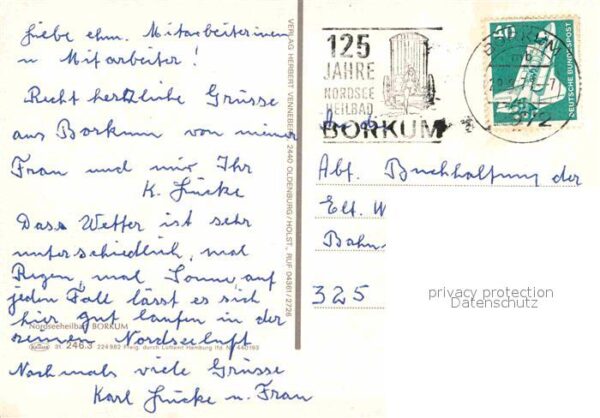 Liebe ehm. Mitarbeiterinnen
u Mitarbeiter!
Recht herzliche Grüsse
aus Borkum von meiner
Frau und mir Ihr
K. Jücke
Dass Wetter ist sehr
unterschiedlich, mal
Regen, mal Sonne, auf
jeden Fall lässt es sich
hier gut laufen in der
reinen Nordseeluft
Nochmals viele Grüsse
Karl Jücke u. Frau
Nordseeheilbad BORKUM
31 246.3 224982 Freig. durch Luftamt Hamburg
VERLAG HERBERT VENNEBERG, 2440 OLDENBURG/HOLST., RUF 04361/2726
125
JAHRE
NORDSEE
HEILBAD
BORKUM
BORKUM
2972
40
DEUTSCHE BUNDESPOST
Abt. Buchhaltung der
Elt. W
Bahn
325
privacy protection
Datenschutz